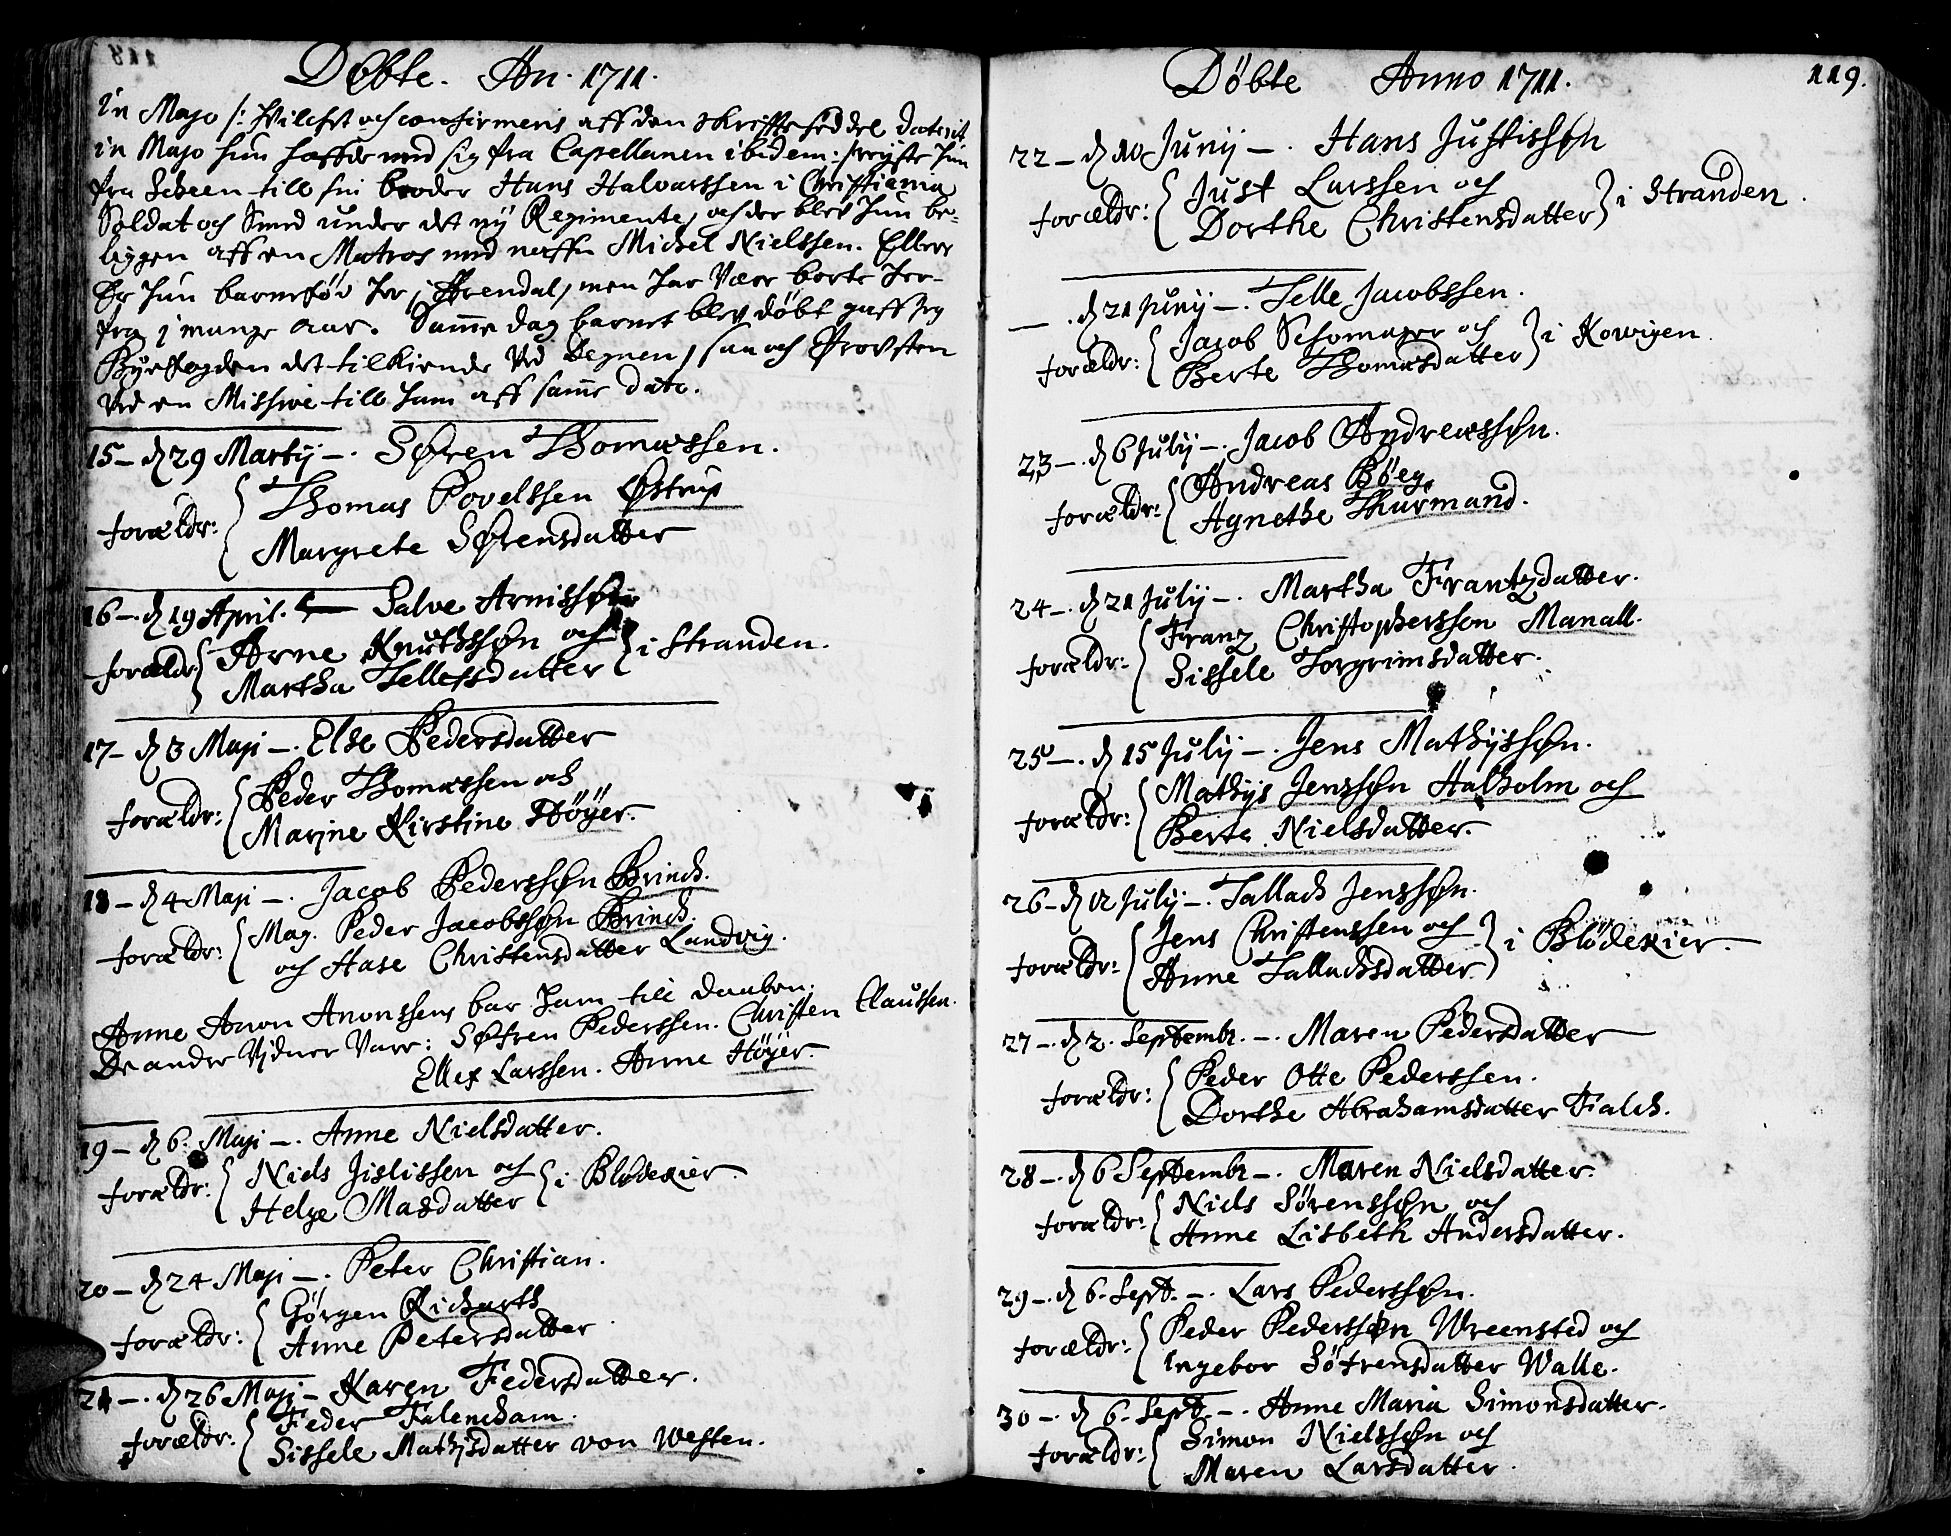 Døbte. An. 1711.
in Majo /: hvilchet och confirmeris aff den skriftseddel daterit
in Majo hun haffde med sig fra Capellanen ibidem :/ reyste hun
fra Scheen till sin broder Hans Halvorssen i Christiania
Soldat och Smed under det ny Regimente, och der blev hun be-
liggen aff en Matros med naffn Michel Nielssen. Ellers
Er hun barnefød her i Arendal, men har Vær borte her-
fra i mange aar. Samme dag barnet blev døbt gaff jeg
Byefogden det tilkiende Ved degnen, saa och Provsten
Ved en Missive till ham aff samme dato.
15 - d 29 Martij -. Søren Thomæssen.
forældr: Thomas Povelssen Østrup
Margrete Sørensdatter
16 -. d 19 April. - Salve Arnissøn
forældr Arne Knutssøn och
Martha Tellefsdatter i Stranden.
17 - d 3 Maji -. Else Pedersdatter
forældr: Peder Thomæssen och
Marine Kirstine Høÿer.
18 - d 4 Maji -. Jacob Pederssøn Brinch.
forældr: Mag. Peder Jacobssøn Brinch.
och Hase Christensdatter Landvig.
Anne Anon Anonssens bar ham till daaben.
De andre Vidner Varr: Søfren Pederssen. Christen Claussen.
Ellef Larssen. Anne Høÿer.
19 - d 6. Maji -. Anne Nielsdatter.
forældr: Niels Jislissen och
Helge Masdatter i Blødekier.
20 - d 24 Maji -. Peter Christian.
forældr: Gørgen Richarth
Anne Petersdatter
21 -. d 26 Maji - Karen Federsdatter.
forældr: Feder Falencham.
Sissele Mathisdatter von Westen.
Døbte Anno 1711.
119.
22 - d 10 Junij -. Hans Justissøn
forældr: Just Larssen och
Dorthe Christensdatter i Stranden.
- . d 21 Junij -. Telle Jacobssen.
forældr: Jacob Schomager och
Berte Thomæsdatter i Kowigen.
23 -. d 6 Julij -. Jacob Andreæssøn.
forældr: Andreas Bøeg.
Agnethe Thurmand.
24 -. d 21 Julij -. Martha Frantzdatter.
forældr: Franz Christopherssen Manall.
Sissele Torgrimsdatter.
25 -. d 15 Julij -. Jens Mathijssøn.
forældr: Mathijs Jenssøn Halholm och
Berte Nielsdatter.
26 - d 12 Julij -. Tallach Jenssøn.
forældr: Jens Christenssen och
Anne Tallachsdatter i Blødekier.
27 -. d 2. Septembr. -. Maren Pedersdatter
forældr: Peder Otte Pederssen.
Dorthe Abrahamsdatter Falch.
28 -. d 6 Septembr -. Maren Nielsdatter.
forældr: Niels Sørenssøn och
Anne Lisbeth Andersdatter.
29 -. d 6. Sept. -. Lars Pederssøn.
forældr: Peder Pederssøn Wreensted och
Ingebor Søfrensdatter Walle.
30 -. d 6. Sept. -. Anne Maria Simonsdatter.
forældr: Simon Nielssøn och
Maren Larsdatter.